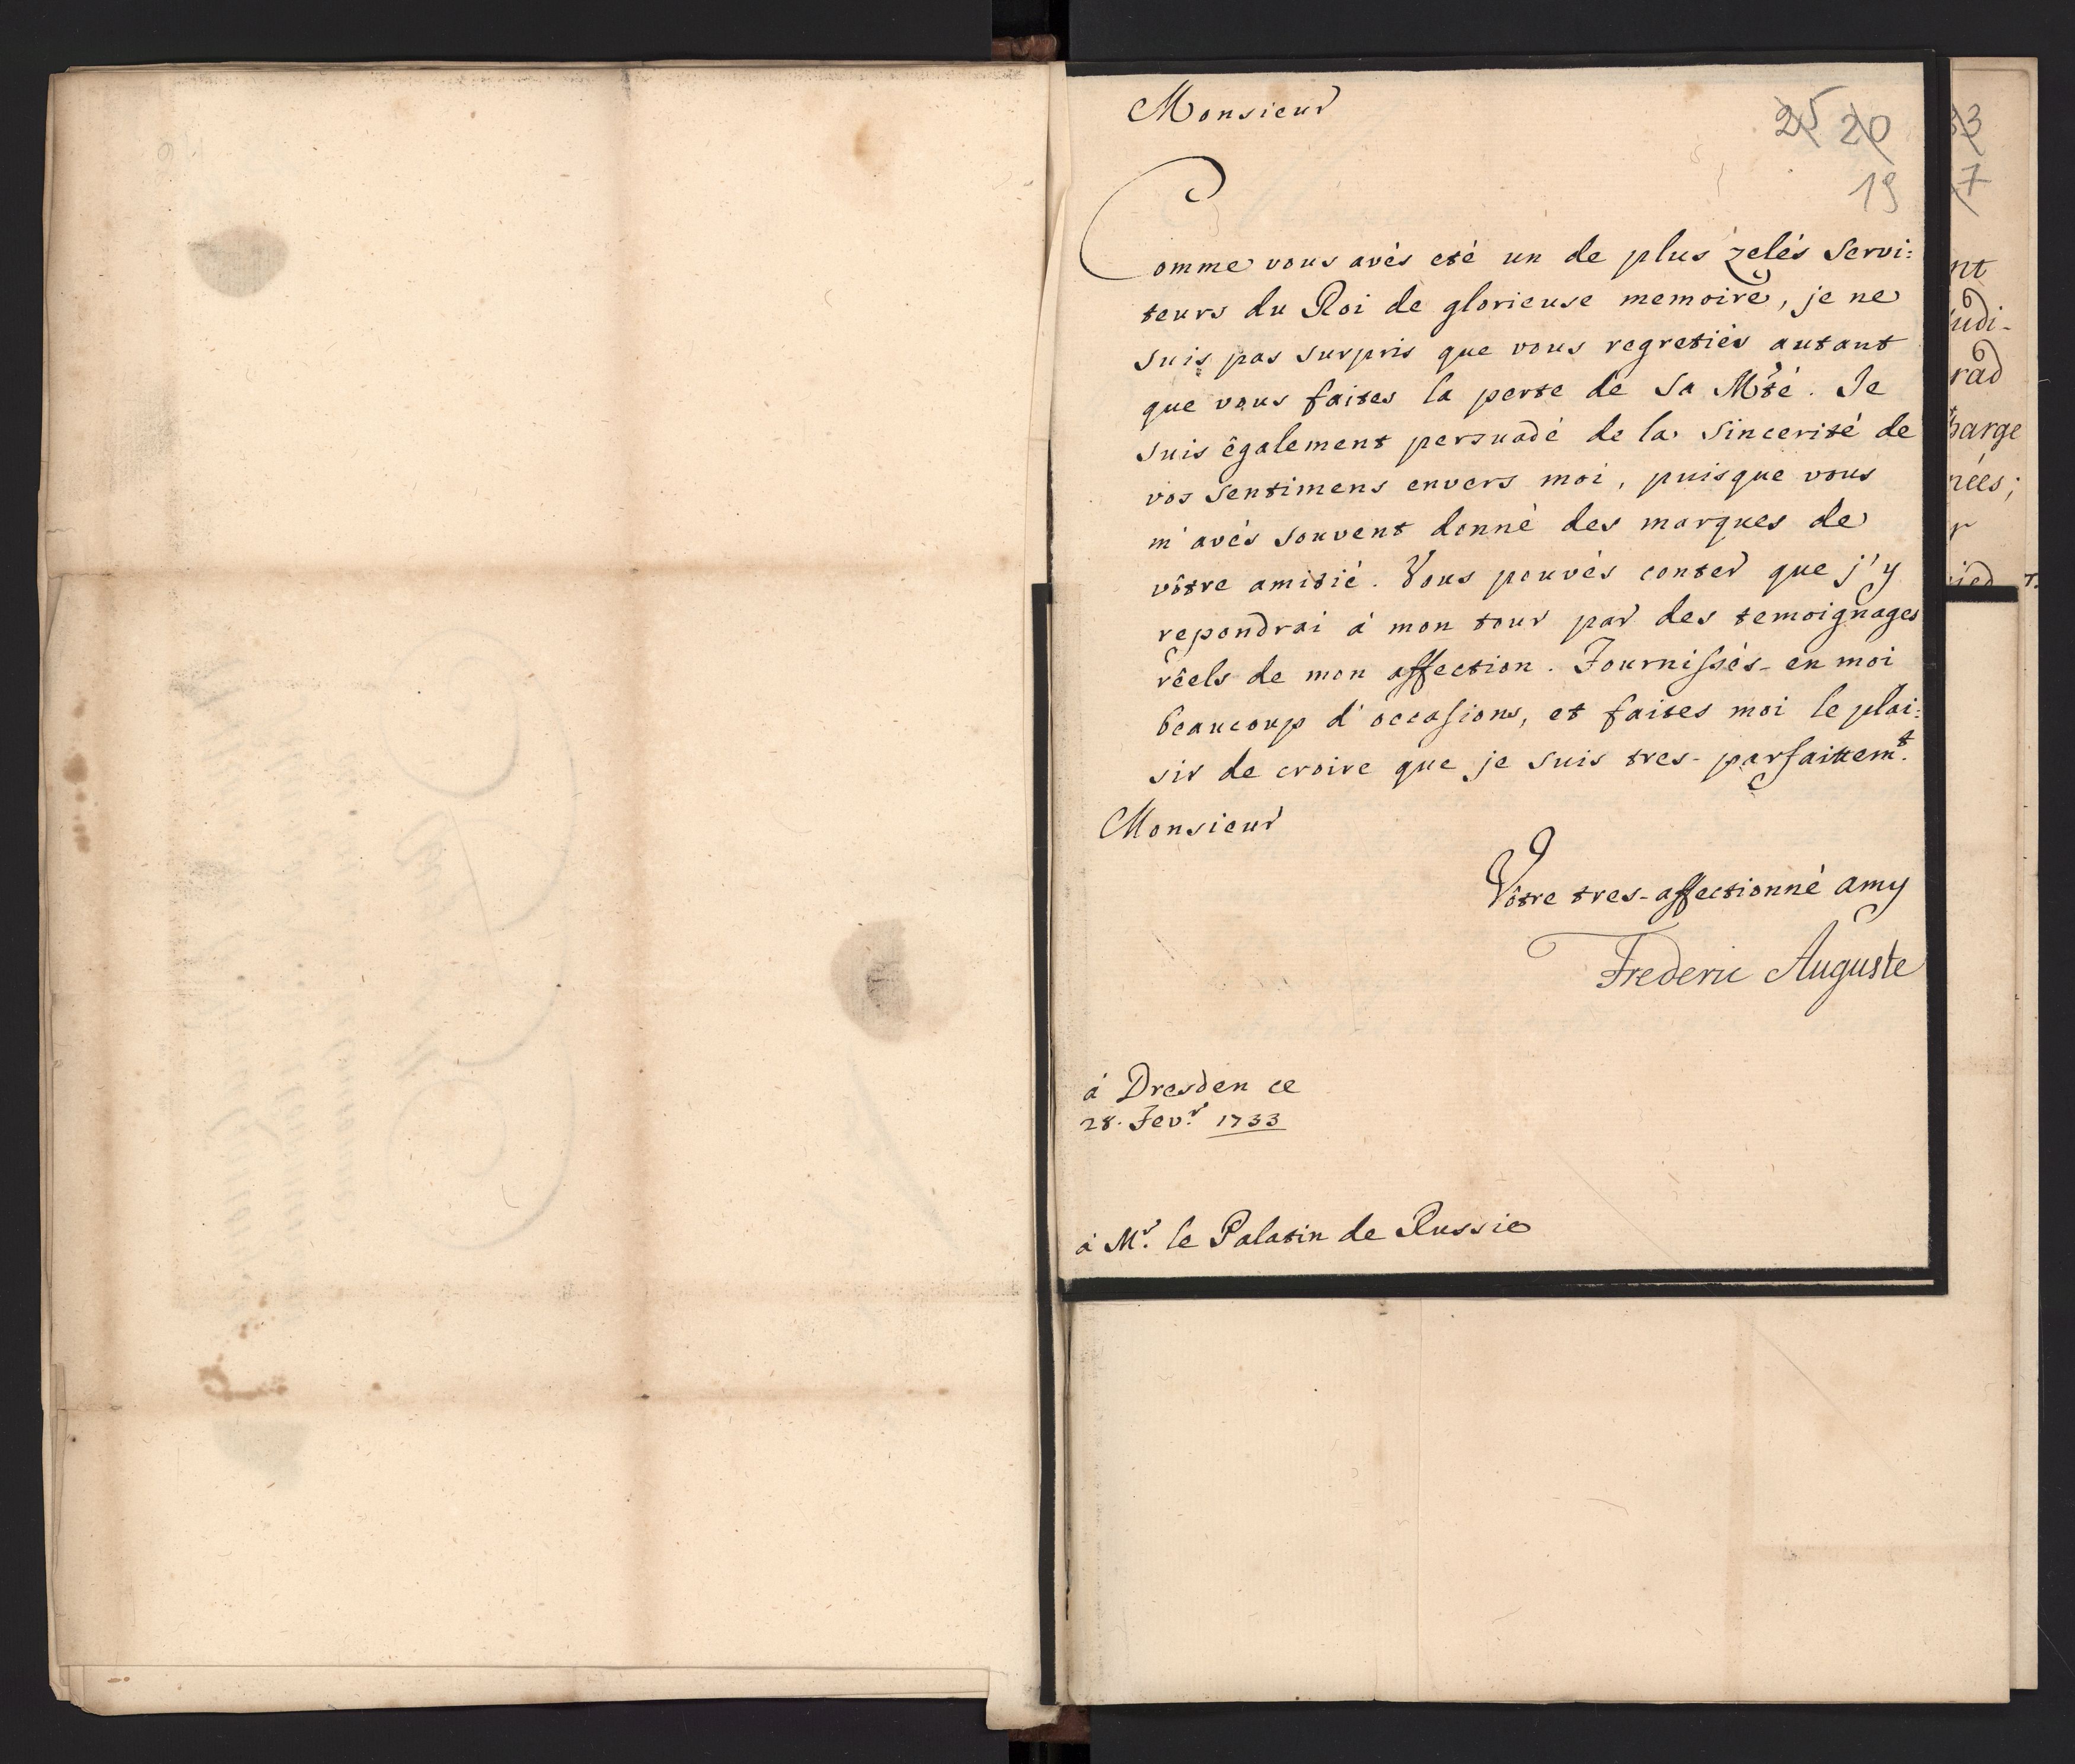 Monsieur
25 20
19
Comme vous avés eté un de plus zelés Servi:
teurs du Roi de glorieuse memoire, je ne
suis pas surpris que vous regretiés autant
que vous faites la perte de Sa Mté. Je
suis êgalement persuadé de la Sincerité de
vos Sentimens envers moi, puisque vous
m'avés souvent donné des marques de
vôtre amitié. Vous pouvés conter que j'y
repondrai à mon tour par des temoignages
rêels de mon affection. Fournissés-en moi
beaucoup d'occasions, et faites moi le plai:
sir de croire que je suis tres-parfaittemt.
Monsieur
Vôtre tres-affectionné amy
Frederic Auguste
à Dresden ce
28. Fevr. 1733
à Mr. le Palatin de Russie
33
7
nt
udi-
rad
harge
nées;
r